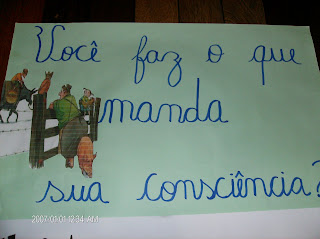 Você faz o que
manda
sua consciência?
2007/01/01 12:34 AM